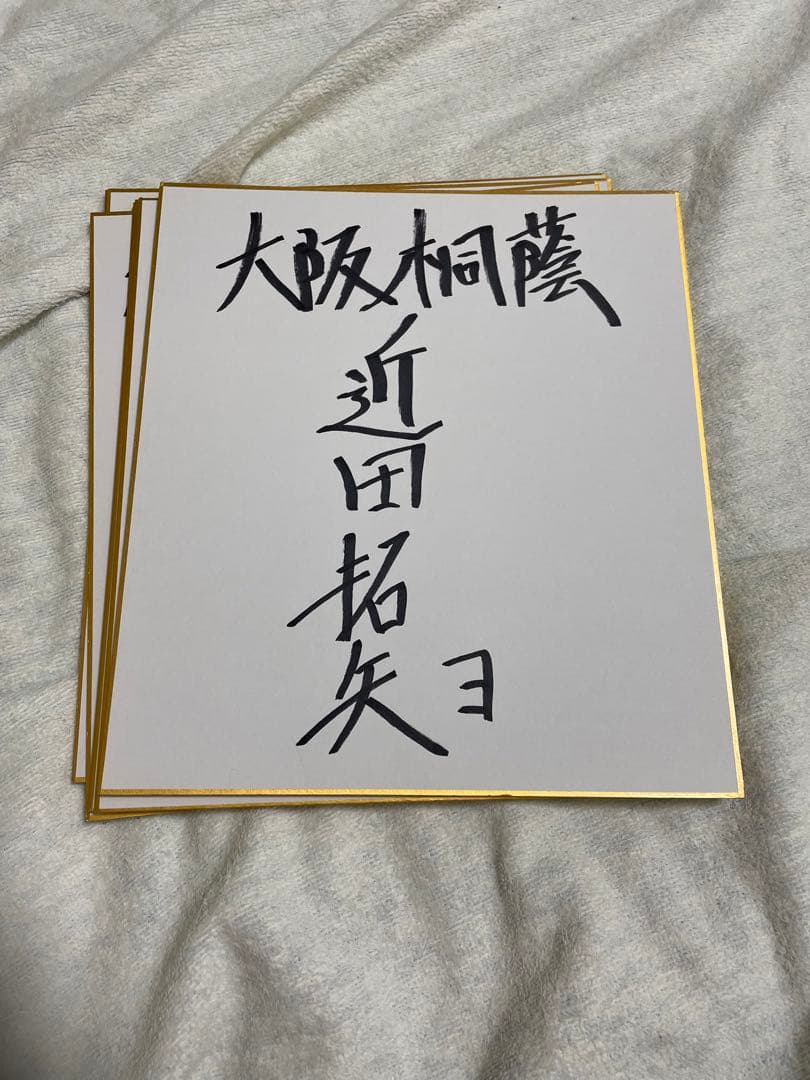 大阪桐蔭
近田拓矢
ヨ